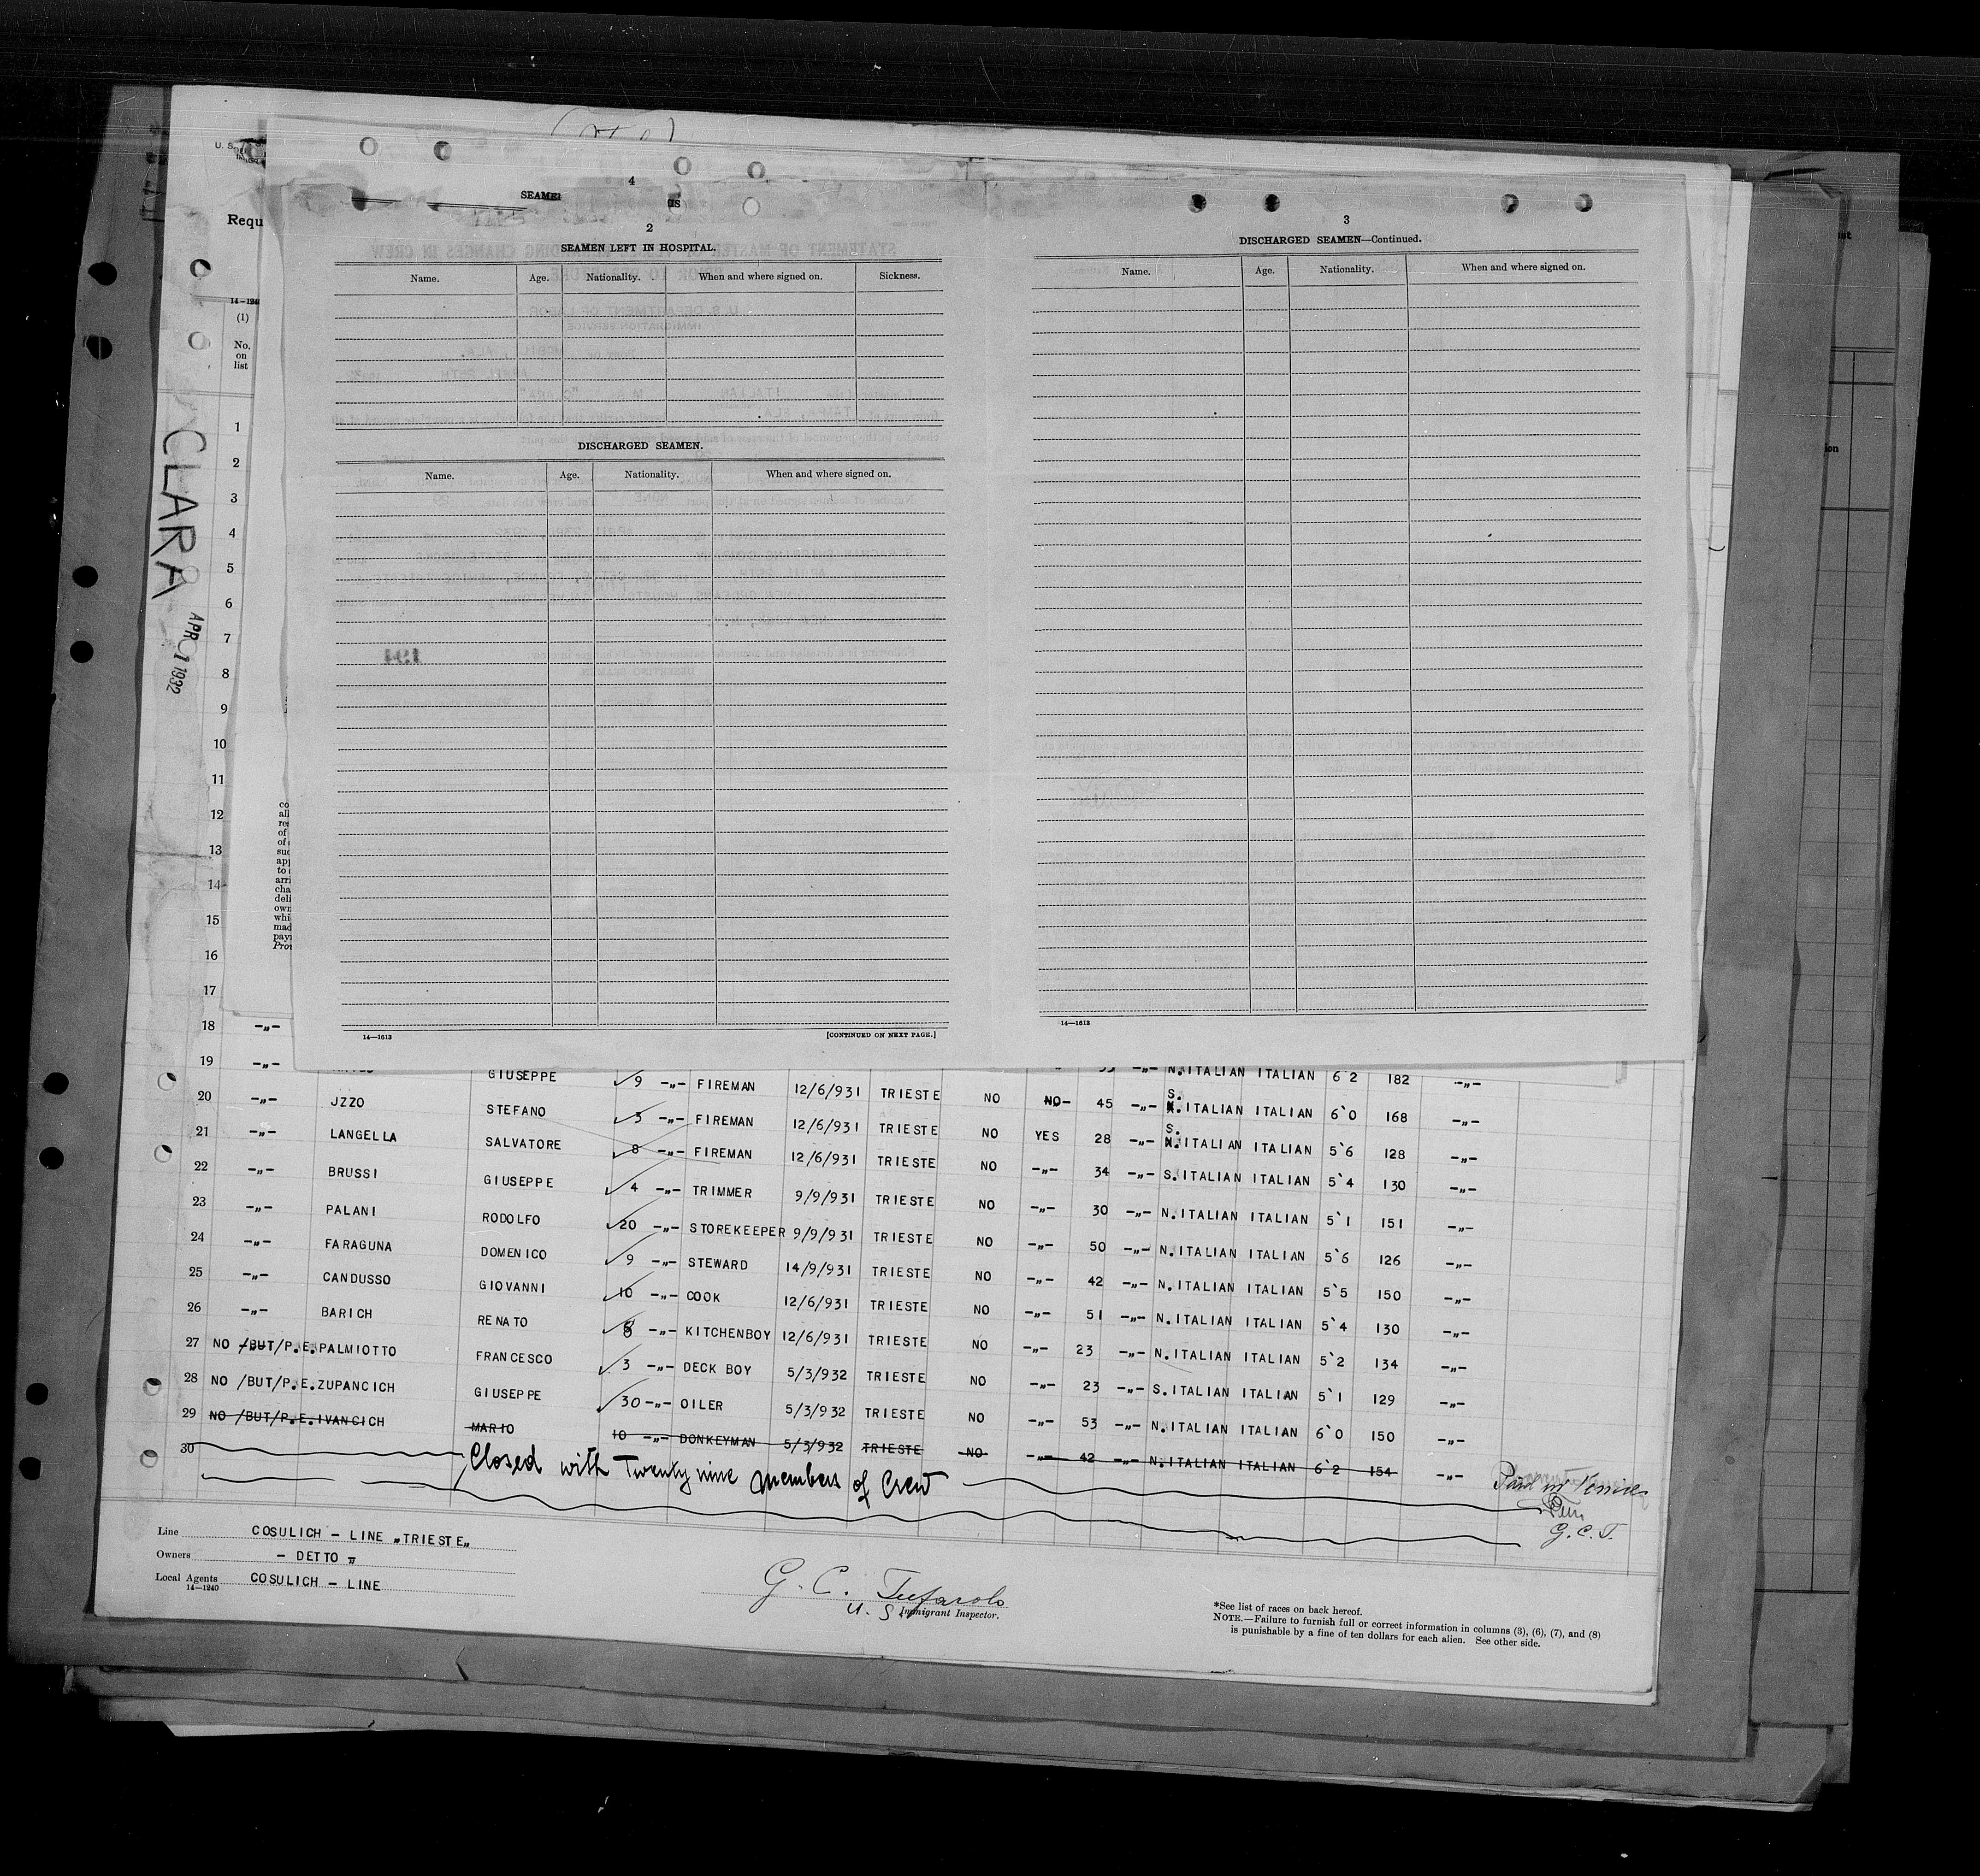 U. S.
4
SEAMEN
2
SEAMEN LEFT IN HOSPITAL.
Name. Age. Nationality. When and where signed on. Sickness.
DISCHARGED SEAMEN.
Name. Age. Nationality. When and where signed on.
14—1613 [CONTINUED ON NEXT PAGE.]
3
DISCHARGED SEAMEN—Continued.
Name. Age. Nationality. When and where signed on.
14—1613
Requ
14-1240
(1)
No.
on
list
CLARA
APR 1 1932
1
2
3
4
5
6
7
8
9
10
11
12
13
14
15
16
17
18 -„-
19 -„- GIUSEPPE 9 -„- FIREMAN 12/6/931 TRIESTE NO -„- N.ITALIAN ITALIAN 6'2 182 -„-
20 -„- JZZO STEFANO 3 -„- FIREMAN 12/6/931 TRIESTE NO NO- 45 -„- S. ITALIAN ITALIAN 6'0 168 -„-
21 -„- LANGELLA SALVATORE 8 -„- FIREMAN 12/6/931 TRIESTE NO YES 28 -„- S. ITALIAN ITALIAN 5'6 128 -„-
22 -„- BRUSSI GIUSEPPE 4 -„- TRIMMER 9/9/931 TRIESTE NO -„- 34 -„- S.ITALIAN ITALIAN 5'4 130 -„-
23 -„- PALANI RODOLFO 20 -„- STOREKEEPER 9/9/931 TRIESTE NO -„- 30 -„- N.ITALIAN ITALIAN 5'1 151 -„-
24 -„- FARAGUNA DOMENICO 9 -„- STEWARD 14/9/931 TRIESTE NO -„- 50 -„- N.ITALIAN ITALIAN 5'6 126 -„-
25 -„- CANDUSSO GIOVANNI 10 -„- COOK 12/6/931 TRIESTE NO -„- 42 -„- N.ITALIAN ITALIAN 5'5 150 -„-
26 -„- BARICH RENATO 8 -„- KITCHENBOY 12/6/931 TRIESTE NO -„- 51 -„- N.ITALIAN ITALIAN 5'4 130 -„-
27 NO /BUT/P.E.PALMIOTTO FRANCESCO 3 -„- DECK BOY 5/3/932 TRIESTE NO -„- 23 -„- N.ITALIAN ITALIAN 5'2 134 -„-
28 NO /BUT/P.E.ZUPANCICH GIUSEPPE 30 -„- OILER 5/3/932 TRIESTE NO -„- 23 -„- S.ITALIAN ITALIAN 5'1 129 -„-
29 NO /BUT/P.E.IVANCICH MARIO 10 -„- DONKEYMAN 5/3/932 TRIESTE NO -„- 53 -„- N.ITALIAN ITALIAN 6'0 150 -„-
30 -„- 42 -„- N.ITALIAN ITALIAN 6'2 154 -„-
Closed with Twenty nine members of Crew
G.C.T.
Line COSULICH - LINE „TRIESTE„
Owners - DETTO „
Local Agents COSULICH - LINE
14-1240
G. C. Tufarolo
U. S. Immigrant Inspector.
*See list of races on back hereof.
NOTE.—Failure to furnish full or correct information in columns (3), (6), (7), and (8)
is punishable by a fine of ten dollars for each alien. See other side.